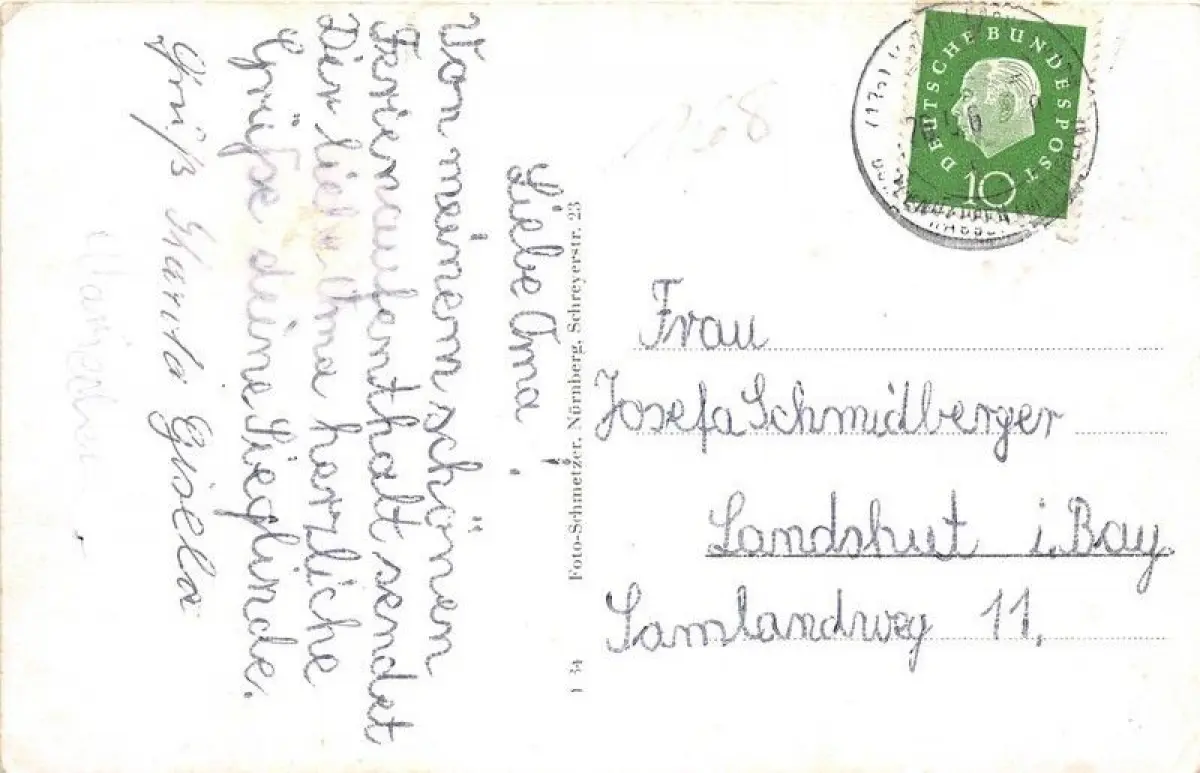 Liebe Oma!
Von meinem schönen
Ferienaufenthalt sendet
Dir liebe Oma herzliche
Grüße deine Sieglinde.
Gruß Gisela
Foto-Schmetzer, Nörnberg, Schreyerstr. 23
1 34
DEUTSCHE BUNDESPOST
10
Frau
Josefa Schmidberger
Landshut i. Bay.
Samlandweg 11.